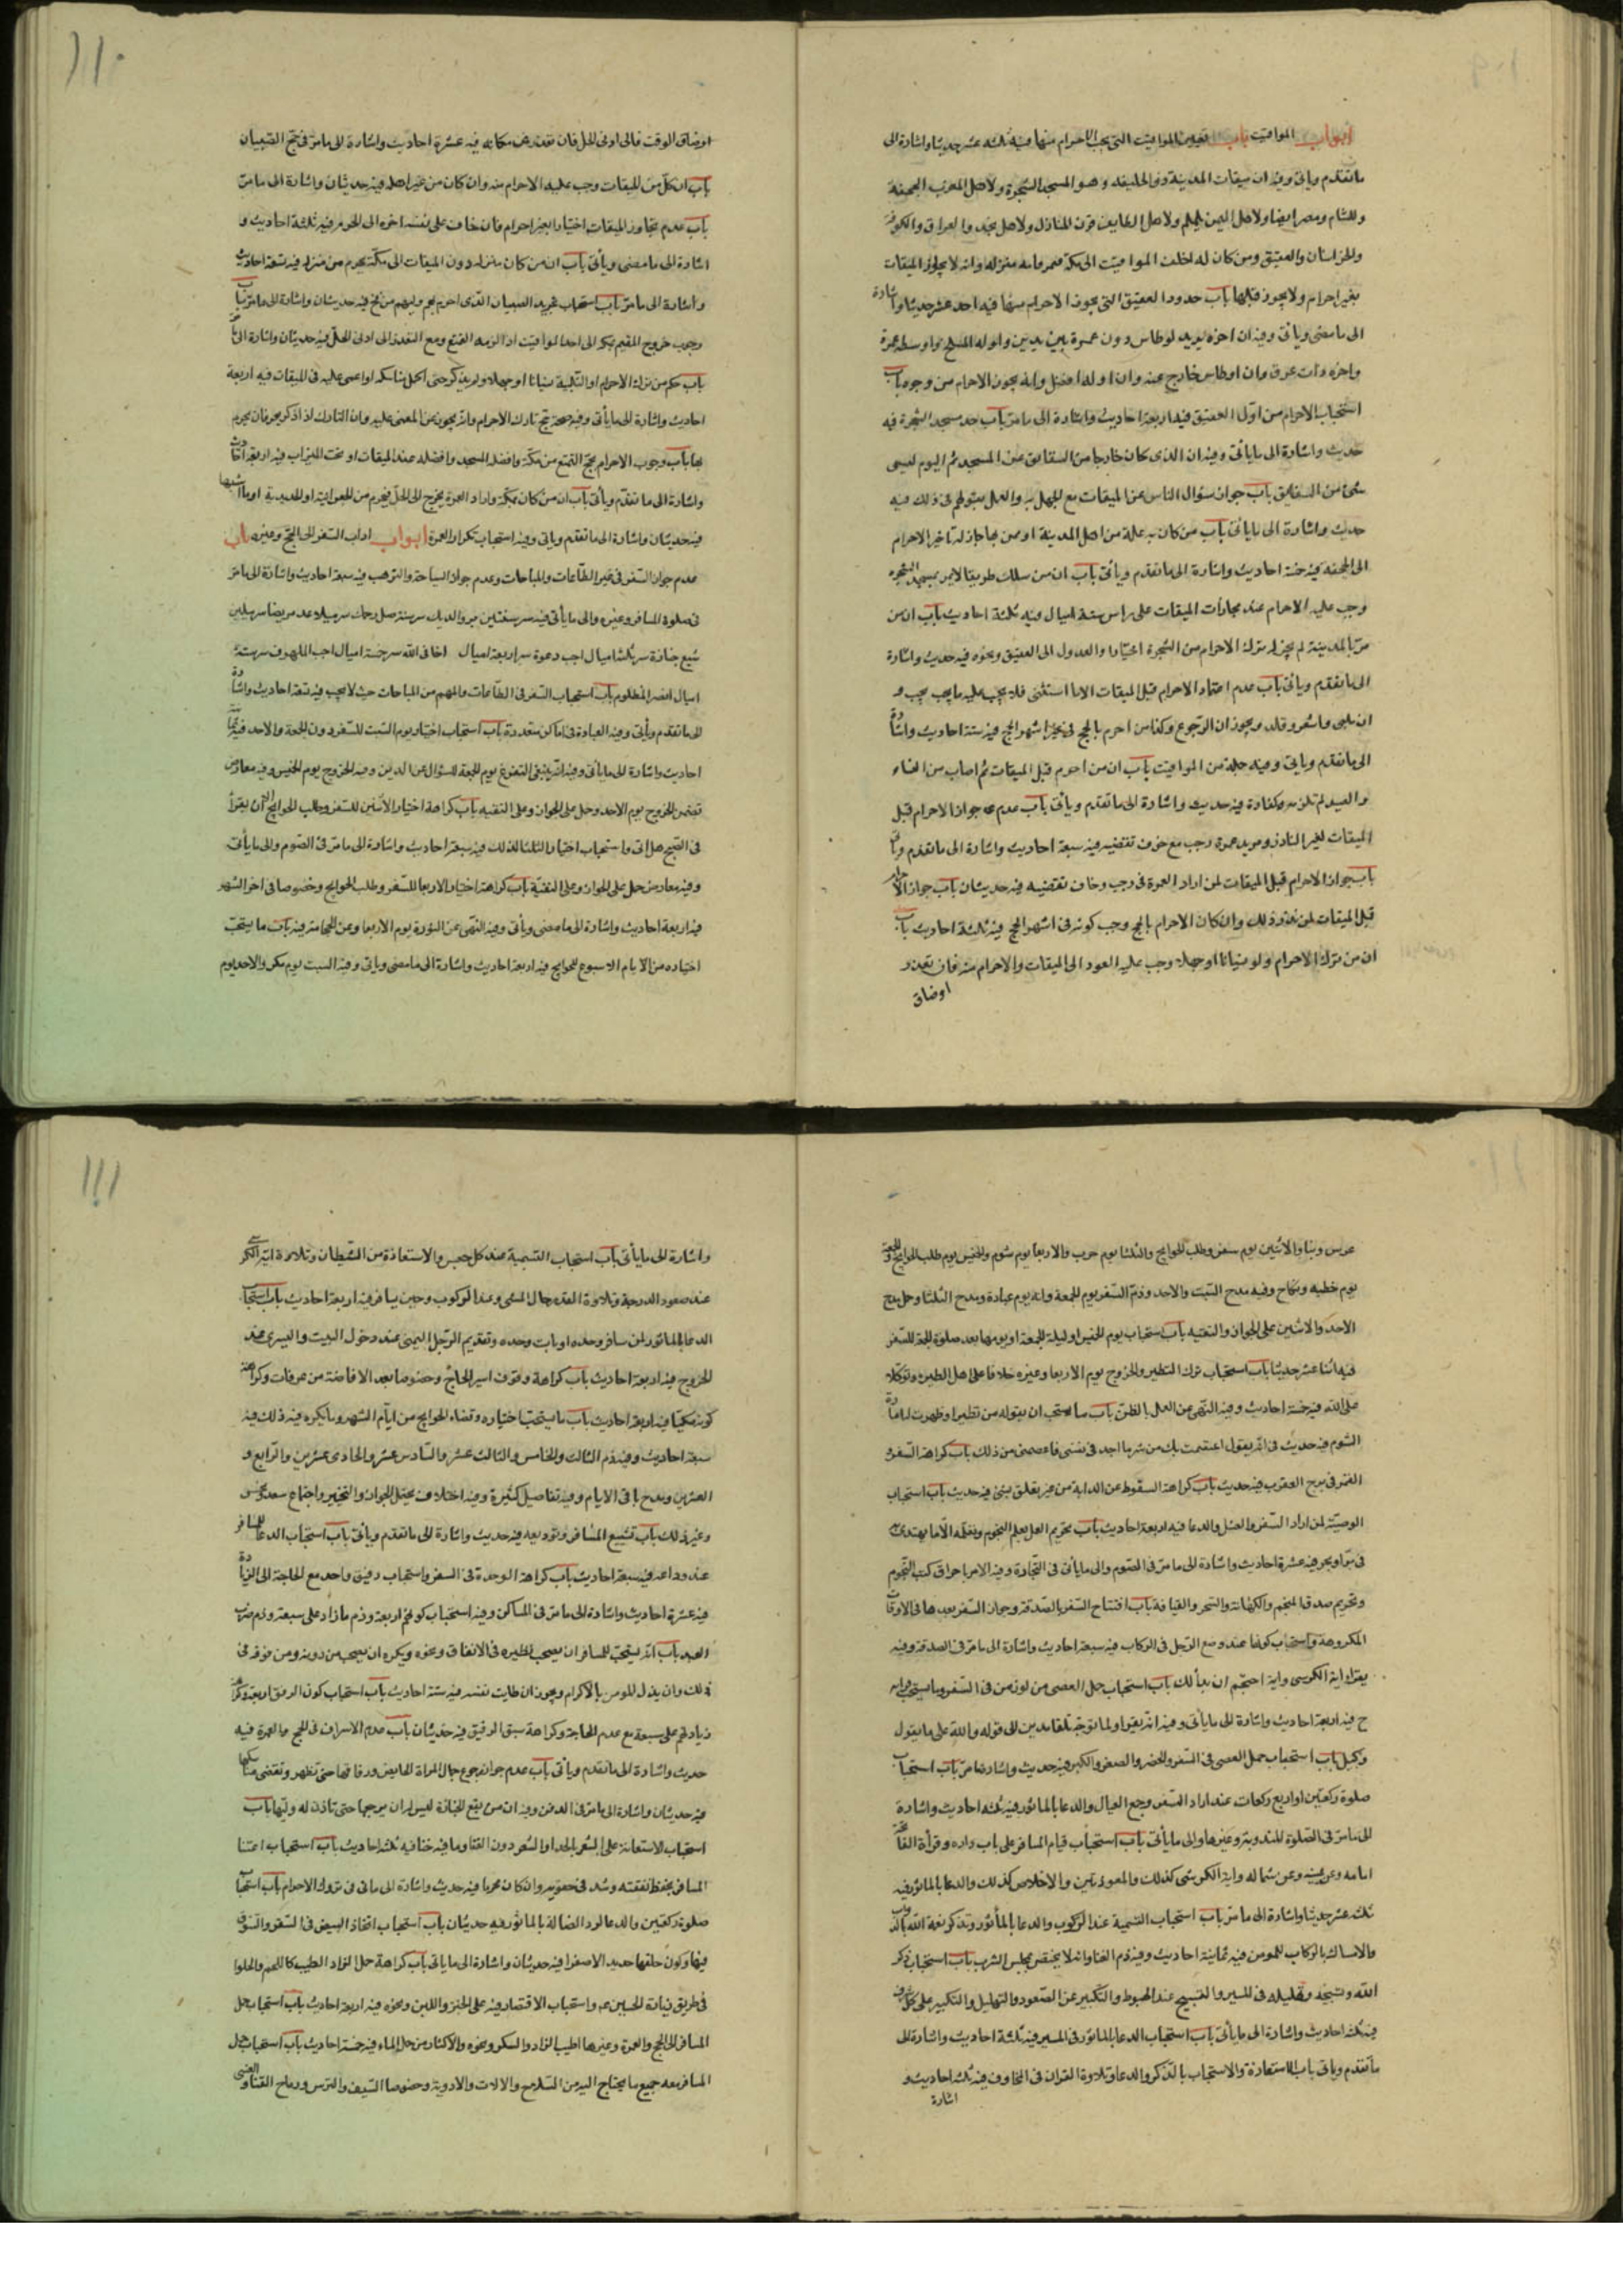 ابواب المواقيت باب تعيين المواقيت التى يجب الاحرام منها فيه ثلثه عشر حديثا واشارة الى
ما تقدم وياتى وفيه ان ميقات المدينة ذو الحليفه وهو المسجد الشجرة ولاهل المغرب الجحفة
وللشام ومصر ايضا ولاهل اليمن يلملم ولاهل الطايف قرن المنازل ولاهل نجد والعراق والكوفة
والخراسان والعقيق ومن كان له اخلف المواقيت الى مكة فميقاته منزله وانه لا يجاوز الميقات
بغير احرام ولا يجوز قبلها باب حدود العقيق التى يجوز الاحرام منها فيه احد عشر حديثا واشارة
الى ما مضى وياتى وفيه ان اخره بريد اوطاس دون غمرة ببريدين واوله المسلح واوسطه غمرة
واخره ذات عرق وان اوطاس خارج عنه وان اوله افضل وانه يجوز الاحرام من وجوه باب
استحباب الاحرام من اول العقيق فيه اربعة احاديث واشارة الى ما مر باب حد مسجد الشجرة فيه
حديث واشارة الى ما ياتى وفيه ان الذى كان خارجا من السقايق عن المسجد ثم اليوم ليس
شئ من السقايق باب جواز سؤال الناس عن الميقات مع الجهل به والعمل بقولهم فى ذلك فيه
حديث واشارة الى ما ياتى باب من كان به علة من اهل المدينة او ممن بها جاز له تاخير الاحرام
الى الجحفه فيه خمسة احاديث واشارة الى ما تقدم وياتى باب ان من سلك طريقا لا يمر بمسجد الشجرة
وجب عليه الاحرام عند محاذات الميقات على راس ستة اميال فيه ثلثة احاديث باب ان من
مر بالمدينة لم يجز له ترك الاحرام من الشجرة اختيارا والعدول الى العقيق ونحوه فيه حديث واشارة
الى ما تقدم وياتى باب عدم انعقاد الاحرام قبل الميقات الا ما استثنى فلا يجب عليه ما يجب و
ان لبى واشعر وقلد ويجوز ان الرجوع وكذا من احرم بالحج فى غير اشهر الحج فيه ستة احاديث واشارة
الى ما تقدم وياتى وفيه جملة من المواقيت باب ان من احرم قبل الميقات ثم اصاب من النساء
والصيد لم تلزمه كفارة فيه حديث واشارة الى ما تقدم وياتى باب عدم جواز الاحرام قبل
الميقات لغير الناذر ومريد عمرة رجب مع خوف تقضيه فيه سبعة احاديث واشارة الى ما تقدم وياتى
باب جواز الاحرام قبل الميقات لمن اراد العمرة فى رجب وخاف تقضيه فيه حديثان باب جواز الاحرام
قبل الميقات لمن نذر ذلك وان كان الاحرام بالحج وجب كونه فى اشهر الحج فيه ثلثة احاديث باب
ان من ترك الاحرام ولو نسيانا او جهلا وجب عليه العود الى الميقات والاحرام منه فان تعذر
اوضاق
اوضاق الوقت فالى ادنى الحل فان تعذر فمن مكانه فيه عشرة احاديث واشارة الى ما مر فى حج الصبيان
باب ان كل من مر للميقات وجب عليه الاحرام منه وان كان من غير اهله فيه حديثان واشارة الى ما مر
باب عدم تجاوز الميقات اختيارا بغير احرام فان خاف على نفسه اخره الى الحرم فيه ثلثة احاديث و
اشارة الى ما مضى وياتى باب ان من كان منزله دون الميقات الى مكة يحرم من منزله فيه تسعة احاديث
واشارة الى ما مر باب استحباب تجريد الصبيان الذى احرم بهم وليهم من فخ فيه حديثان واشارة الى ما مر باب
وجوب خروج المقيم بمكة الى احد المواقيت اذا لزمه التمتع ومع التعذر الى ادنى الحل فيه حديثان واشارة الى ما ياتى
باب حكم من ترك الاحرام او التلبية نسيانا او جهلا ولم يذكر حتى اكمل مناسكه او اغمى عليه فى الميقات فيه اربعة
احاديث واشارة الى ما يأتى وفيه صحة حج تارك الاحرام وانه يجوز عن المغمى عليه وان التارك اذا ذكر بعرفات يحرم
بها باب وجوب الاحرام بحج التمتع من مكة وافضله المسجد وافضله عند الميقات او تحت الميزاب فيه اربعة احاديث
واشارة الى ما تقدم ويأتى باب ان من كان بمكة واراد العمرة يخرج الى الحل فيحرم من الجعرانة او الحديبية او ما اشبهها
فيه حديثان واشارة الى ما تقدم وياتى وفيه استحباب تكرار العمرة ابواب اداب السفر الى الحج وغيره باب
عدم جواز السفر فى غير الطاعات والمباحات وعدم جواز السياحة والترهب فيه سبعة احاديث واشارة الى ما مر
فى صلوة المسافر وغيره والى ما يأتى فيه سر سنتين بر والديك سر سنة صل رحمك سر ميلا عد مريضا سر ميلين
شيع جنازة سر ثلثة اميال اجب دعوة سر اربعة اميال اخا فى الله سر خمسة اميال اجب الملهوف سر ستة
اميال انصر المظلوم باب استحباب السفر فى الطاعات والمهم من المباحات حيث لا يجب فيه تسعة احاديث واشارة
الى ما تقدم ويأتى وفيه العبادة فى اماكن متعددة باب استحباب اختيار يوم السبت للسفر دون الجمعة والاحد فيه ثمانية
احاديث واشارة الى ما يأتى وفيه انه ينبغى التفرغ يوم الجمعة للسؤال عن الدين وفيه الخروج يوم الخميس وفيه معارض
تضمن الخروج يوم الاحد وحمل على الجواز وعلى التقيه باب كراهة اختيار الاثنين للسفر وطلب الحوايج الا ان يقرأ
فى الصبح هل اتى واستحباب اختيار الثلثا لذلك فيه سبعة احاديث واشارة الى ما مر فى الصوم والى ما يأتى
وفيه معارض حمل على الجواز وعلى التقية باب كراهة اختيار الاربعا للسفر وطلب الحوايج وخصوصا فى اخر الشهر
فيه اربعة احاديث واشارة الى ما مضى ويأتى وفيه النهى عن النورة يوم الاربعا وعن الحجامة فيه باب ما يستحب
اختياره من الايام الاسبوع للحوايج فيه اربعة احاديث واشارة الى ما مضى وياتى وفيه السبت يوم مكر والاحد يوم
غرس وبنا والاثنين يوم سفر وطلب الحوايج والثلثا يوم حرب والاربعا يوم شوم والخميس يوم طلب الحوايج والجمعة
يوم خطبه ونكاح وفيه مدح السبت والاحد وذم السفر يوم الجمعة وانه يوم عبادة ومدح الثلثا وحمل مدح
الاحد والاثنين على الجواز والتقيه باب استحباب يوم الخميس او ليلة الجمعة او يومها بعد صلوة الجمعة للسفر
فيه اثنا عشر حديثا باب استحباب ترك التطير والخروج يوم الاربعا وغيره خلافا على اهل الطيرة وتوكلا
على الله فيه خمسة احاديث وفيه النهى عن العمل بالظن باب ما يستحب ان يقوله من تطير او ظهرت له امارة
الشوم فيه حديث فى انه يقول اعتصمت بك من شر ما اجد فى نفسى فاعصمنى من ذلك باب كراهة السفر و
القمر فى برج العقرب فيه حديث باب كراهة السقوط عن الدابة من غير تعلق بشئ فيه حديث باب استحباب
الوصية لمن اراد السفر والغسل والدعا فيه اربعة احاديث باب تحريم العمل بعلم النجوم وتعلمه الا ما يهتدى به
فى بر او بحر فيه عشرة احاديث واشارة الى ما مر فى الصوم والى ما يأتى فى التجارة وفيه الامر باحراق كتب النجوم
وتحريم صدق المنجم والكهانة والسحر والقيافة باب افتتاح السفر بالصدقة وجواز السفر بعدها فى الاوقات
المكروهة واستحباب كونها عند وضع الرجل فى الركاب فيه سبعة احاديث واشارة الى ما مر فى الصدقة وفيه
يقرا اية الكرسى واية احتجم ان بدأ لك باب استحباب حمل العصى من لوز مر فى السفر وما يستحب
ح فيه اربعة احاديث واشارة الى ما يأتى وفيه انه يقرا ولما توجه تلقا مدين الى قوله والله على ما نقول
وكيل باب استحباب حمل العصى فى السفر والحضر والصغر والكبر فيه حديث واشارة ما مر باب استحباب
صلوة ركعتين او اربع ركعات عند اراد السفر وجمع العيال والدعا بالماثور فيه ثلثه احاديث واشارة
الى ما مر فى الصلوة المندوبة وغيرها والى ما يأتى باب استحباب قيام المسافر على باب داره وقرأة الفاتحة
امامه وعن يمينه وعن شماله واية الكرسى كذلك والمعوذتين والاخلاص كذلك والدعا بالماثور فيه
ثلث عشر حديثا واشارة الى ما مر باب استحباب التسمية عند الركوب والدعا بالمأثور وتذكر نعمة الله بالدواب
والامساك بالركاب للمومن فيه ثمانية احاديث وفيه ذم الغنا وانه لا يختص بمجلس الشرب باب استحباب ذكر
الله وتسبيحه وتهليله فى المسير والتسبيح عند الهبوط والتكبير عن الصعود والتهليل والتكبير على كل شرف
فيه ثلثة احاديث واشارة الى ما يأتى باب استحباب الدعا بالماثور فى المسير فيه ثلثة احاديث واشارة الى
ما تقدم وياتى باب الاستعاذة والاستحباب بالذكر والدعا وتلاوة القران فى المخاوف فيه ثلثه احاديث و
اشارة
واشارة الى ما يأتى باب استحباب التسمية عند كل جسر والاستعاذة من الشيطان وتلاوة اية الكرسى
عند صعود الدرجة وتلاوة القدر حال المشى وعند الركوب وحين يسافر فيه اربعة احاديث باب استحباب
الدعا بالماثور لمن سافر وحده او بات وحده وتقديم الرجل اليمنى عند دخول البيت واليسرى عند
الخروج فيه اربعة احاديث باب كراهة وقوف امير الحاج وخصوصا بعد الافاضة من عرفات وكراهة
كونه مكيا فيه اربعة احاديث باب ما يستحب اختياره وقضاء الحوايج من ايام الشهر وما يكره فيه ذلك فيه
سبعة احاديث وفيه ذم الثالث والخامس والثالث عشر والسادس عشر والحادى عشرين والرابع و
العشرين ومدح باقى الايام وفيه تفاصيل كثيرة وفيه اختلاف يحتمل الجواز والتخيير واجتماع سعد ونحس
وغير ذلك باب تشييع المسافر وتوديعه فيه حديث واشارة الى ما تقدم وياتى باب استحباب الدعا للمسافر
عند وداعه فيه سبعة احاديث باب كراهة الوحدة فى السفر واستحباب رفيق واحد مع الحاجة الى الزيادة
فيه عشرة احاديث واشارة الى ما مر فى المساكن وفيه استحباب كونهم اربعة وذم ما زاد على سبعة وذم ضرب
العبد باب انه يستحب للمسافر ان يصحب نظيره فى الانفاق ونحوه ويكره ان يصحب من دونه ومن فوقه فى
ذلك وان يذل المومن بالاكرام ويجوز ان طابت نفسه فيه ستة احاديث باب استحباب كون الرفق اربعة وكراهة
زيادتهم على سبعة مع عدم الحاجة وكراهة سبق الرفيق فيه حديثان باب عدم الاسراف فى الحج والعمرة فيه
حديث واشارة الى ما تقدم وياتى باب عدم جواز رجوع جمال المراة الحايض ورفاقها حتى تطهر وتقضى مناسكها
فيه حديثان واشارة الى ما مر فى الدفن وفيه ان من يتبع الجنازة ليس له ان يرجع حتى تاذن له وليها باب
استحباب الاستعانة على السفر بالحدا والشعر دون الغنا وما فيه خنا فيه ثلثة احاديث باب استحباب اعتنا
المسافر بحفظ نفقته وشد فى حقويه وان كان محرما فيه حديث واشارة الى ما ياتى فى تروك الاحرام باب استحباب
صلوة ركعتين والدعا لرد الضالة بالماثور فيه حديثان باب استحباب اتخاذ السيف فى السفر والسوق
فيها وكون حلقها حديد الا صفرا فيه حديثان واشارة الى ما ياتى باب كراهة حمل الزاد الطيب كاللحم والحلوا
فى طريق زيارة الحسين ع واستحباب الاقتصار فيه على الخبز واللبن ونحوه فيه اربعة احاديث باب استحباب حمل
المسافر الى الحج والعمرة وغيرها اطيب الزاد والسكر ونحوه والاكثار من حمل الماء فيه خمسة احاديث باب استحباب حمل
المسافر معه جميع ما يحتاج اليه من السلاح والالات والادوية وخصوصا السيف والترس ورماح القنا والقسى